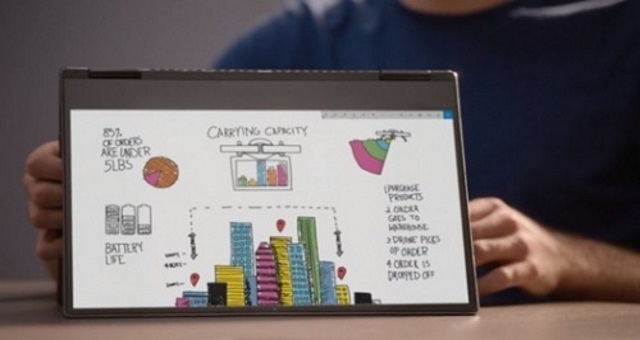 85%
OF ORDERS
ARE UNDER
5LBS
CARRYING CAPACITY
BATTERY
LIFE
1 PURCHASE
PRODUCTS
2 ORDER
GOES TO
WAREHOUSE
3 DRONE PICKS
UP ORDER
4 ORDER IS
DROPPED OFF